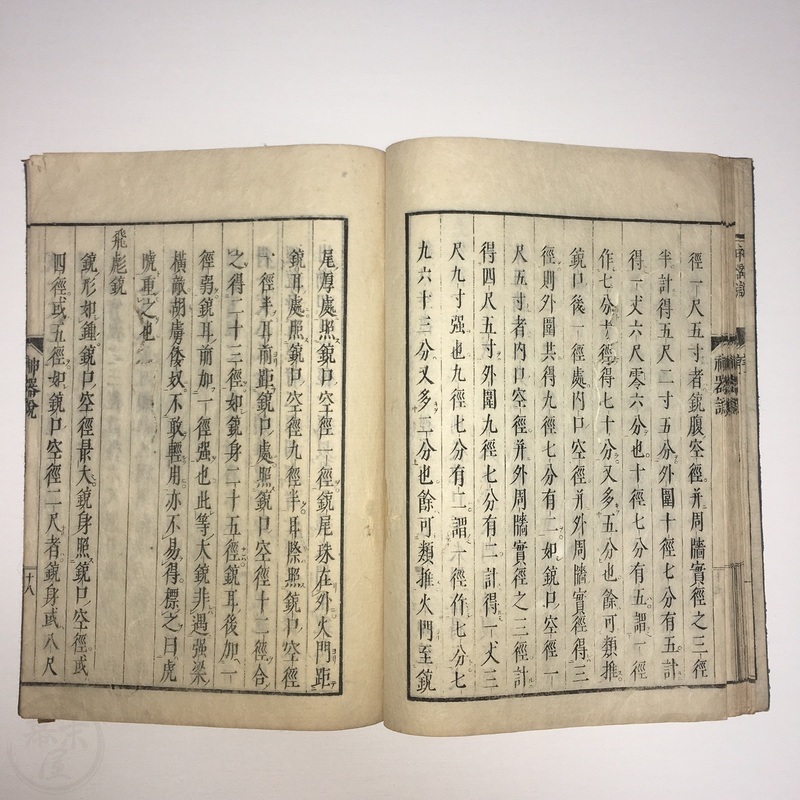 徑一尺五寸者銃腹空徑并周牆實徑之三徑
半計得五尺二寸五分外圍十徑七分有五計
得一丈六尺零六分也十徑七分有五謂一徑
作七分十徑得七十分又多五分也餘可類推
銃口後一徑處內口空徑并外周牆實徑得三
徑則外圍其得九徑七分有二如銃口空徑一
尺五寸者內口空徑并外周牆實徑之三徑計
得四尺五寸外圍九徑七分有二計得一丈三
尺九寸強也九徑七分有二謂一徑作七分七
九六十三分又多二分也餘可類推火門至銃
尾厚處照銃口空徑一徑銃尾珠在外火門距
銃耳處照銃口空徑九徑半耳際照銃口空徑
一徑半耳前距銃口處照銃口空徑十二徑合
之得二十三徑如銃身二十五徑銃耳後加一
徑弱銃耳前加一徑強也此等大銃非遇強梁
橫敵胡虜倭奴不敢輕用亦不易得標之曰虎
唬重之也
飛彪銃
銃形如鍾銃口空徑最大銃身照銃口空徑或
四徑或五徑如銃口空徑二尺者銃身或八尺
神器說
十八
神器譜